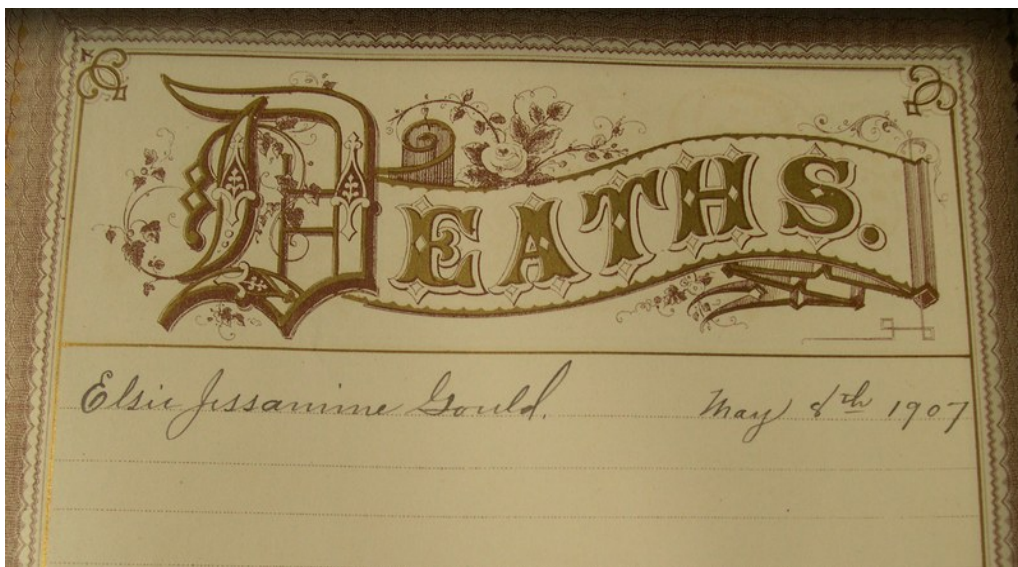 DEATHS.
Elsie Jessamine Gould. May 8th 1907